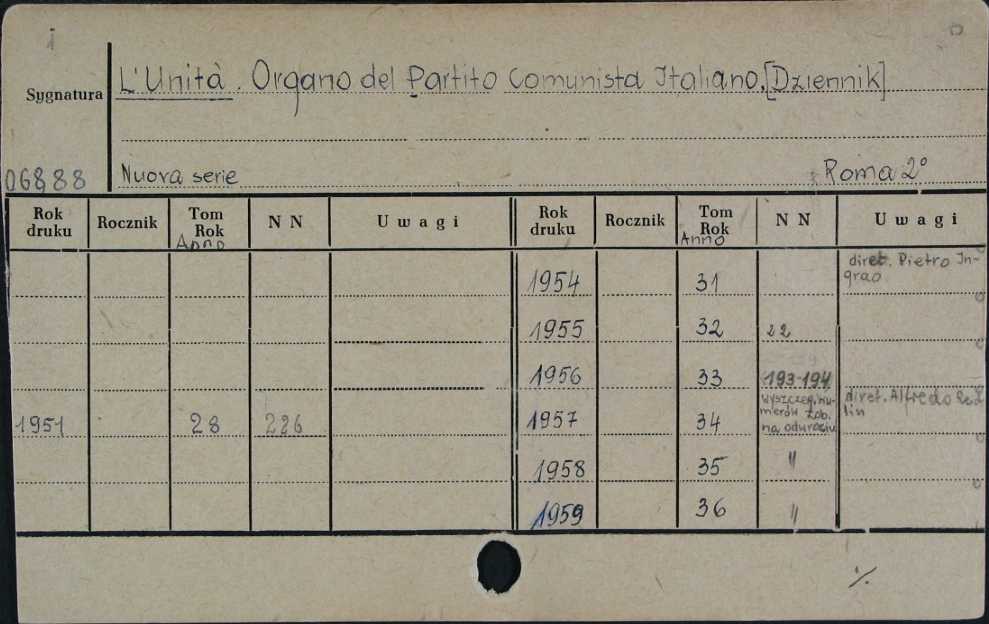 i
Sygnatura L'Unità. Organo del Partito Comunista Italiano.[Dziennik]
06888 Nuova serie Roma 2°
Rok druku Rocznik Tom Rok Anno N N Uwagi Rok druku Rocznik Tom Rok Anno N N Uwagi
1954 31 diret. Pietro In-
grao
1955 32 22
1956 33 193-194
1951 28 226 1957 34 wyszczeg. nu-
merów zob.
na odwrociu diret. Alfredo Reich-
lin
1958 35 "
1959 36 "
·/.